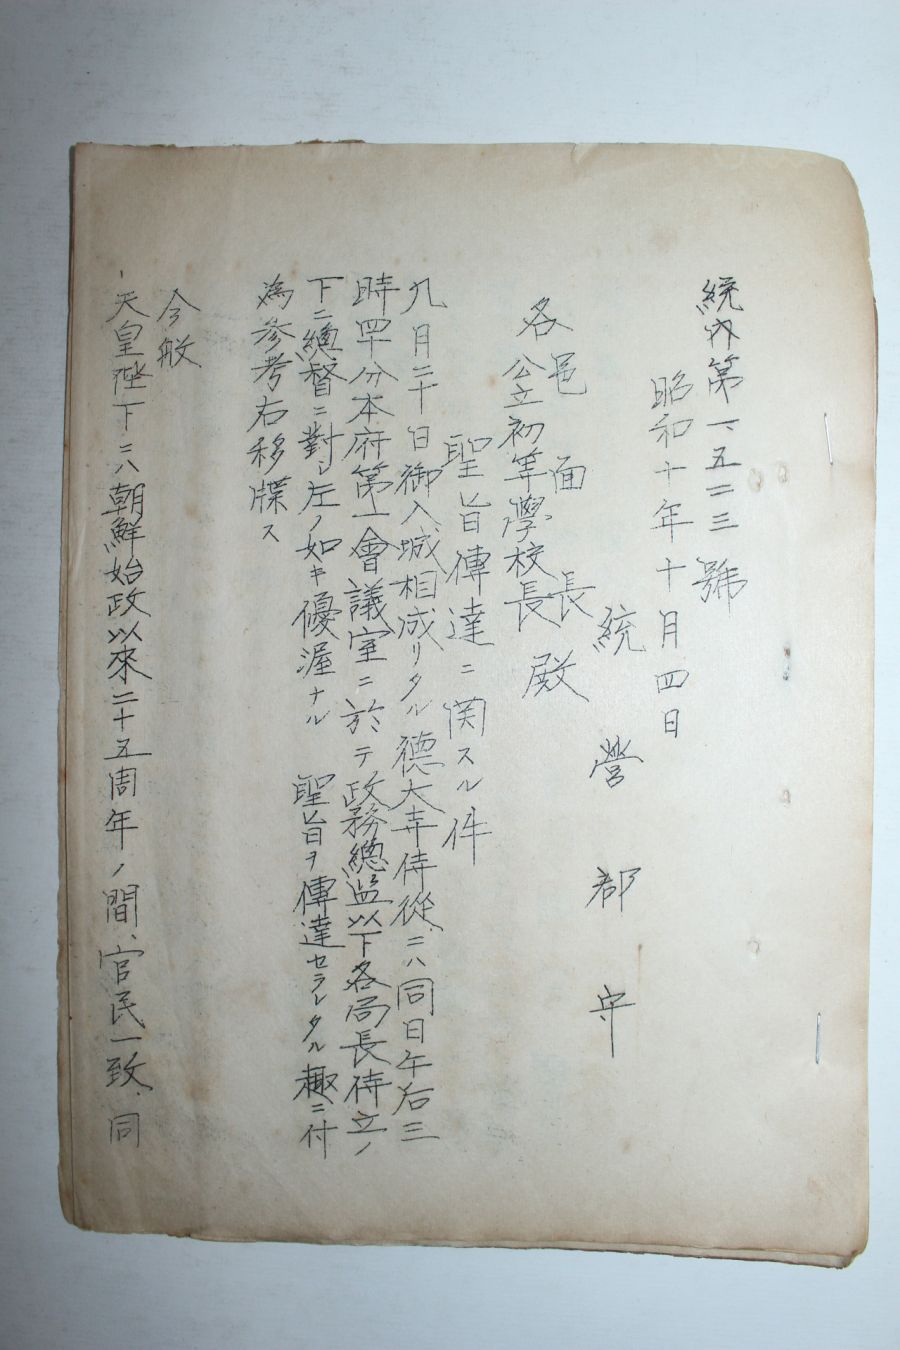 統內第一五二三號
昭和十年十月四日
統營郡守
各邑面長
公立初等學校長殿
聖旨傳達ニ関スル件
九月二十日御入城相成リタル德大寺侍從ニハ同日午后三
時四十分本府第一會議室ニ於テ政務總监以下各局長侍立ノ
下ニ總督ニ對シ左ノ如キ優渥ナル 聖旨ヲ傳達セラレタル趣ニ付
為參考右移牒ス
今般
天皇陛下ニハ朝鮮始政以來二十五周年ノ間、官民一致、同